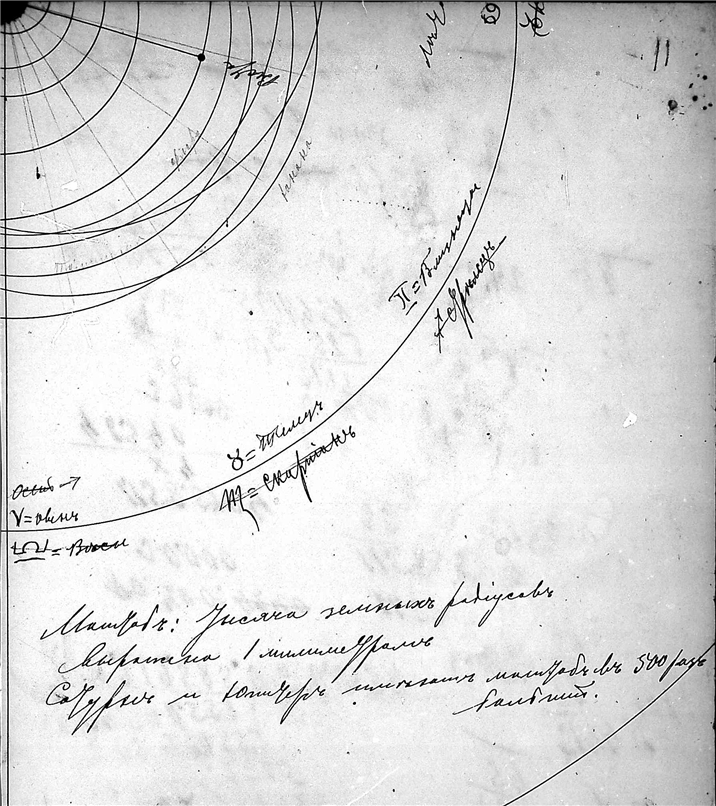 11
69
Веста
♊ = Близнецы
Стрѣлецъ
♉ = Телецъ
♏ = Скорпіонъ
♈ = овенъ
♎ = Весы
Масштабъ: Тысяча земныхъ радіусовъ
выражена 1 миллиметромъ
Сатурнъ и Юпитеръ имеютъ масштабъ въ 500 разъ
большій.